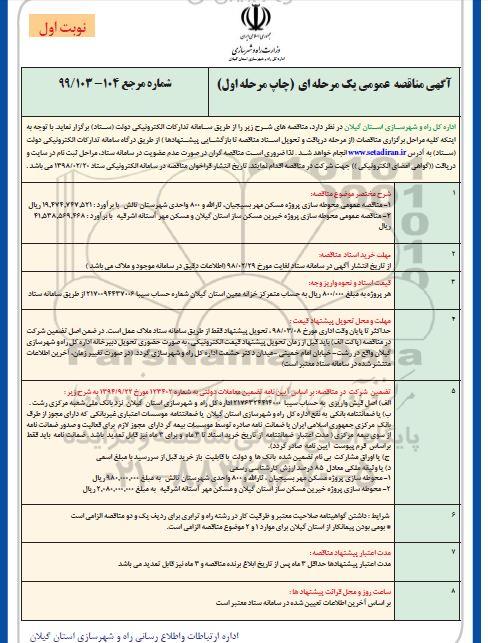 نوبت اول
جمهوری اسلامی ایران
وزارت راه و شهرسازی
اداره کل راه و شهرسازی استان گیلان
آگهی مناقصه عمومی یک مرحله ای (چاپ مرحله اول)
شماره مرجع ۱۰۴-۹۹/۱۰۳
اداره کل راه و شهرسازی استان گیلان در نظر دارد، مناقصه های شرح زیر را از طریق سامانه تدارکات الکترونیکی دولت (ستاد) برگزار نماید. با توجه به
اینکه کلیه مراحل برگزاری مناقصات (از مرحله دریافت و تحویل اسناد مناقصه تا بازگشایی پیشنهادها) از طریق درگاه سامانه تدارکات الکترونیکی دولت
(ستاد) به آدرس www.setadiran.ir انجام خواهد شد. لذا ضروری است مناقصه گران در صورت عدم عضویت در سامانه ستاد، مراحل ثبت نام در سایت و
دریافت ((گواهی امضای الکترونیکی)) جهت شرکت در مناقصه اقدام نمایند. تاریخ انتشار فراخوان مناقصه در سامانه الکترونیکی ستاد ۱۳۹۸/۰۲/۲۰ می باشد.
۱
شرح مختصر موضوع مناقصه:
۱- مناقصه عمومی محوطه سازی پروژه مسکن مهر بسیجیان، ثارالله و ۸۰۰ واحدی شهرستان تالش با برآورد: ۱۹,۴۷۴,۷۶۷,۵۲۱ ریال
۲- مناقصه عمومی محوطه سازی پروژه خیرین مسکن ساز استان گیلان و مسکن مهر آستانه اشرفیه با برآورد: ۴۱,۵۳۸,۵۶۹,۴۶۸
ریال
۲
مهلت خرید اسناد مناقصه:
از تاریخ انتشار آگهی در سامانه ستاد لغایت مورخ ۹۸/۰۲/۲۹ (اطلاعات دقیق در سامانه موجود و ملاک می باشد)
۳
قیمت اسناد و نحوه واریز وجه:
هر پروژه به مبلغ ۸۰۰/۰۰۰ ریال به حساب متمرکز خزانه معین استان گیلان شماره حساب سیبا ۲۱۷۰۰۹۴۴۳۷۰۰۶ از طریق سامانه ستاد
۴
مهلت و محل تحویل پیشنهاد قیمت:
حداکثر تا پایان وقت اداری مورخ ۹۸/۰۳/۰۸، تحویل پیشنهاد فقط از طریق سامانه ستاد ملاک عمل است. در ضمن اصل تضمین شرکت
در مناقصه (پاکت الف) باید قبل از زمان تحویل پیشنهاد قیمت الکترونیکی، به صورت حضوری تحویل دبیرخانه اداره کل راه و شهرسازی
گیلان واقع در رشت- خیابان امام خمینی- میدان دکتر حشمت اداره کل راه و شهرسازی گردد. (در صورت تغییر زمان، آخرین اطلاعات
منتشر شده در سامانه ستاد معتبر است)
۵
تضمین شرکت در مناقصه: بر اساس آیین نامه تضمین معاملات دولتی به شماره ۱۲۳۴۰۲ مورخ ۱۳۹۴/۹/۲۲ به شرح زیر:
ب) یا ضمانتنامه بانکی به نفع اداره کل راه و شهرسازی استان گیلان یا ضمانتنامه موسسات اعتباری غیربانکی که دارای مجوز از طرف
بانک مرکزی جمهوری اسلامی ایران یا ضمانت نامه صادره توسط موسسات بیمه گر دارای مجوز لازم برای فعالیت و صدور ضمانت نامه
از سوی بیمه مرکزی (مدت اعتبار ضمانتنامه از تاریخ خرید اسناد تا ۳ ماه و برای ۳ ماه نیز قابل تمدید باشد. ضمانت نامه باید فقط
براساس فرم پیوست آیین نامه صادر گردد).
ج) یا اوراق مشارکت بی نام تضمین شده بانک ها و دولت با قابلیت باز خرید قبل از سررسید با مبلغ اسمی
د) یا وثیقه ملکی معادل ۸۵ درصد ارزش کارشناسی رسمی
۱- محوطه سازی پروژه مسکن مهر بسیجیان، ثارالله و ۸۰۰ واحدی شهرستان تالش به مبلغ ۹۸۰,۰۰۰,۰۰۰ ریال
۲- محوطه سازی پروژه خیرین مسکن ساز استان گیلان و مسکن مهر آستانه اشرفیه به مبلغ ۲,۰۸۰,۰۰۰,۰۰۰ ریال
۶
شرایط: داشتن گواهینامه صلاحیت معتبر و ظرفیت کار در رشته راه و ترابری برای ردیف یک و دو مناقصه الزامی است
* بومی بودن پیمانکار از استان گیلان برای موارد ۱ و ۲ موضوع مناقصه الزامی است.
۷
مدت اعتبار پیشنهاد مناقصه:
مدت اعتبار پیشنهادها حداقل ۳ ماه پس از تاریخ ابلاغ برنده مناقصه و ۳ ماه نیز قابل تمدید می باشد
۸
ساعت روز و محل قرائت پیشنهاد ها:
بر اساس آخرین اطلاعات تعیین شده در سامانه ستاد معتبر است
اداره ارتباطات واطلاع رسانی راه و شهرسازی استان گیلان